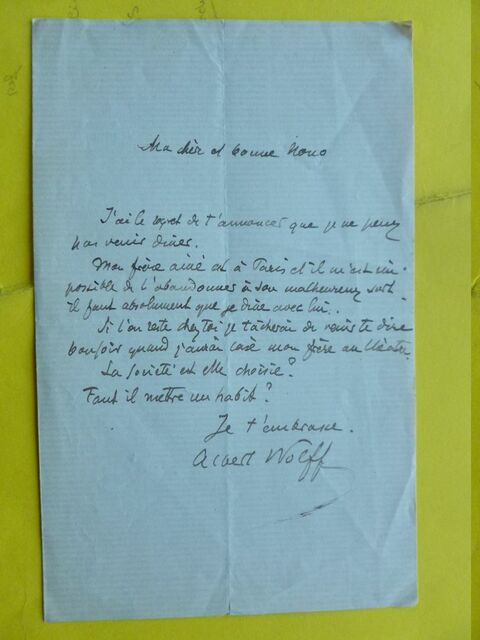 Ma chère et bonne Nono
J'ai le regret de t'annoncer que je ne peux
pas venir dîner.
Mon frère aîné est à Paris et il m'est im-
possible de l'abandonner à son malheureux sort
il faut absolument que je dîne avec lui.
Si l'on reste chez toi je tâcherai de venir te dire
bonsoir quand j'aurai casé mon frère au théâtre.
La société est elle choisie?
Faut il mettre un habit?
Je t'embrasse.
Albert Wolff